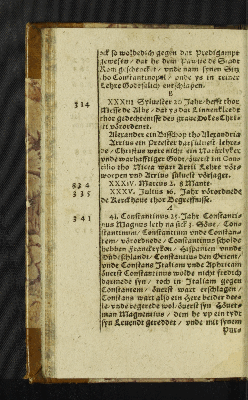 ock so woldedich gegen dat Predigampt
gewesen / dat he dem Pawese de Stadt
Rom geschencket / vnde nam synen Sitz
tho Constantinopel / vnde ys in reiner
Lehre Godtselich entschlapen.
B
314 XXXIII Syluester 20 Jahr / hefft thor
Misse de Albe / dat ys dat Linnenkledt
thor gedechtenisse des graue Dokes Chri-
sti vörordenet.
Alexander ein Bisschop tho Alexandria
Arrius ein Prester darsüluest lehre-
de / Christus were nicht ein Natürlyker
vnde warhafftiger Godt / öuerst im Con-
cilio tho Nicea wart Arrii Lehre vör-
worpen vnd Arrius süluest vörjaget.
334 XXXIV. Marcus 2. 8 Mante.
335 XXXV. Julius 16. Jahr vörordnede
de Kerckhaue thor Begreffnisse.
A
341 41. Constantinus 25. Jahr Constanti-
nus Magnus leth na sick 3. Söne / Cons
tantinum / Constantium vnde Constan-
tem / vörordnede / Constantinus scholde
hebben Franckryken / Hispanien vnnde
Düdschlandt / Constantius den Orient /
vnde Constans Italiam vnde Aphricam
öuerst Constantinus wolde nicht fredich
darmede syn / toch in Italiam gegen
Constantem / öuerst wart erschlagen /
Constans wart also ein Here beider dee-
le / vnde regerede wol / öuerst syn Höuets-
man Magnentius / dem he vp ein tydt
syn Leuendt gereddet / vnde mit synem
Pur-